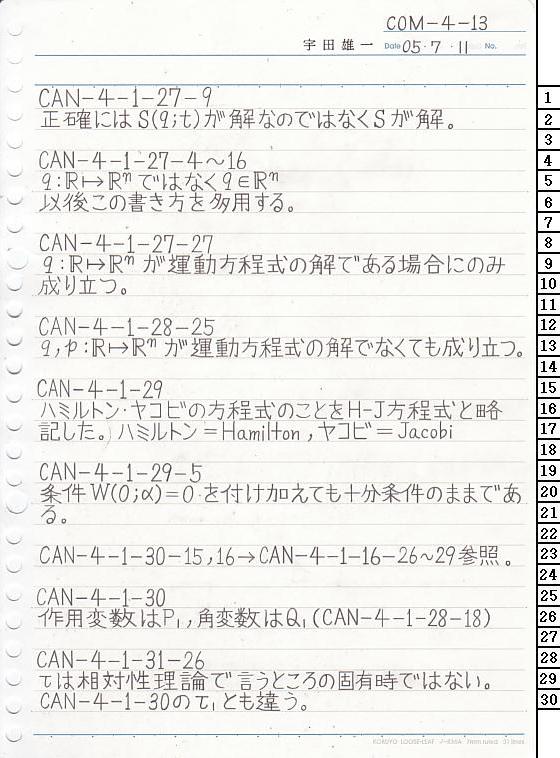 COM-4-13
宇田雄一 Date 05・7・11 No.
CAN-4-1-27-9
正確にはS(q;t)が解なのではなくSが解。
CAN-4-1-27-4〜16
q:ℝ↦ℝⁿではなくq∈ℝⁿ
以後この書き方を多用する。
CAN-4-1-27-27
q:ℝ↦ℝⁿが運動方程式の解である場合にのみ
成り立つ。
CAN-4-1-28-25
q,p:ℝ↦ℝⁿが運動方程式の解でなくても成り立つ。
CAN-4-1-29
ハミルトン・ヤコビの方程式のことをH-J方程式と略
記した。ハミルトン=Hamilton,ヤコビ=Jacobi
CAN-4-1-29-5
条件W(0;α)=0を付け加えても十分条件のままであ
る。
CAN-4-1-30-15,16→CAN-4-1-16-26〜29参照。
CAN-4-1-30
作用変数はP₁,角変数はQ₁(CAN-4-1-28-18)
CAN-4-1-31-26
τは相対性理論で言うところの固有時ではない。
CAN-4-1-30のτ₁とも違う。
KOKUYO LOOSE-LEAF ノ-836A 7mm ruled 31 lines
1
2
3
4
5
6
7
8
9
10
11
12
13
14
15
16
17
18
19
20
21
22
23
24
25
26
27
28
29
30